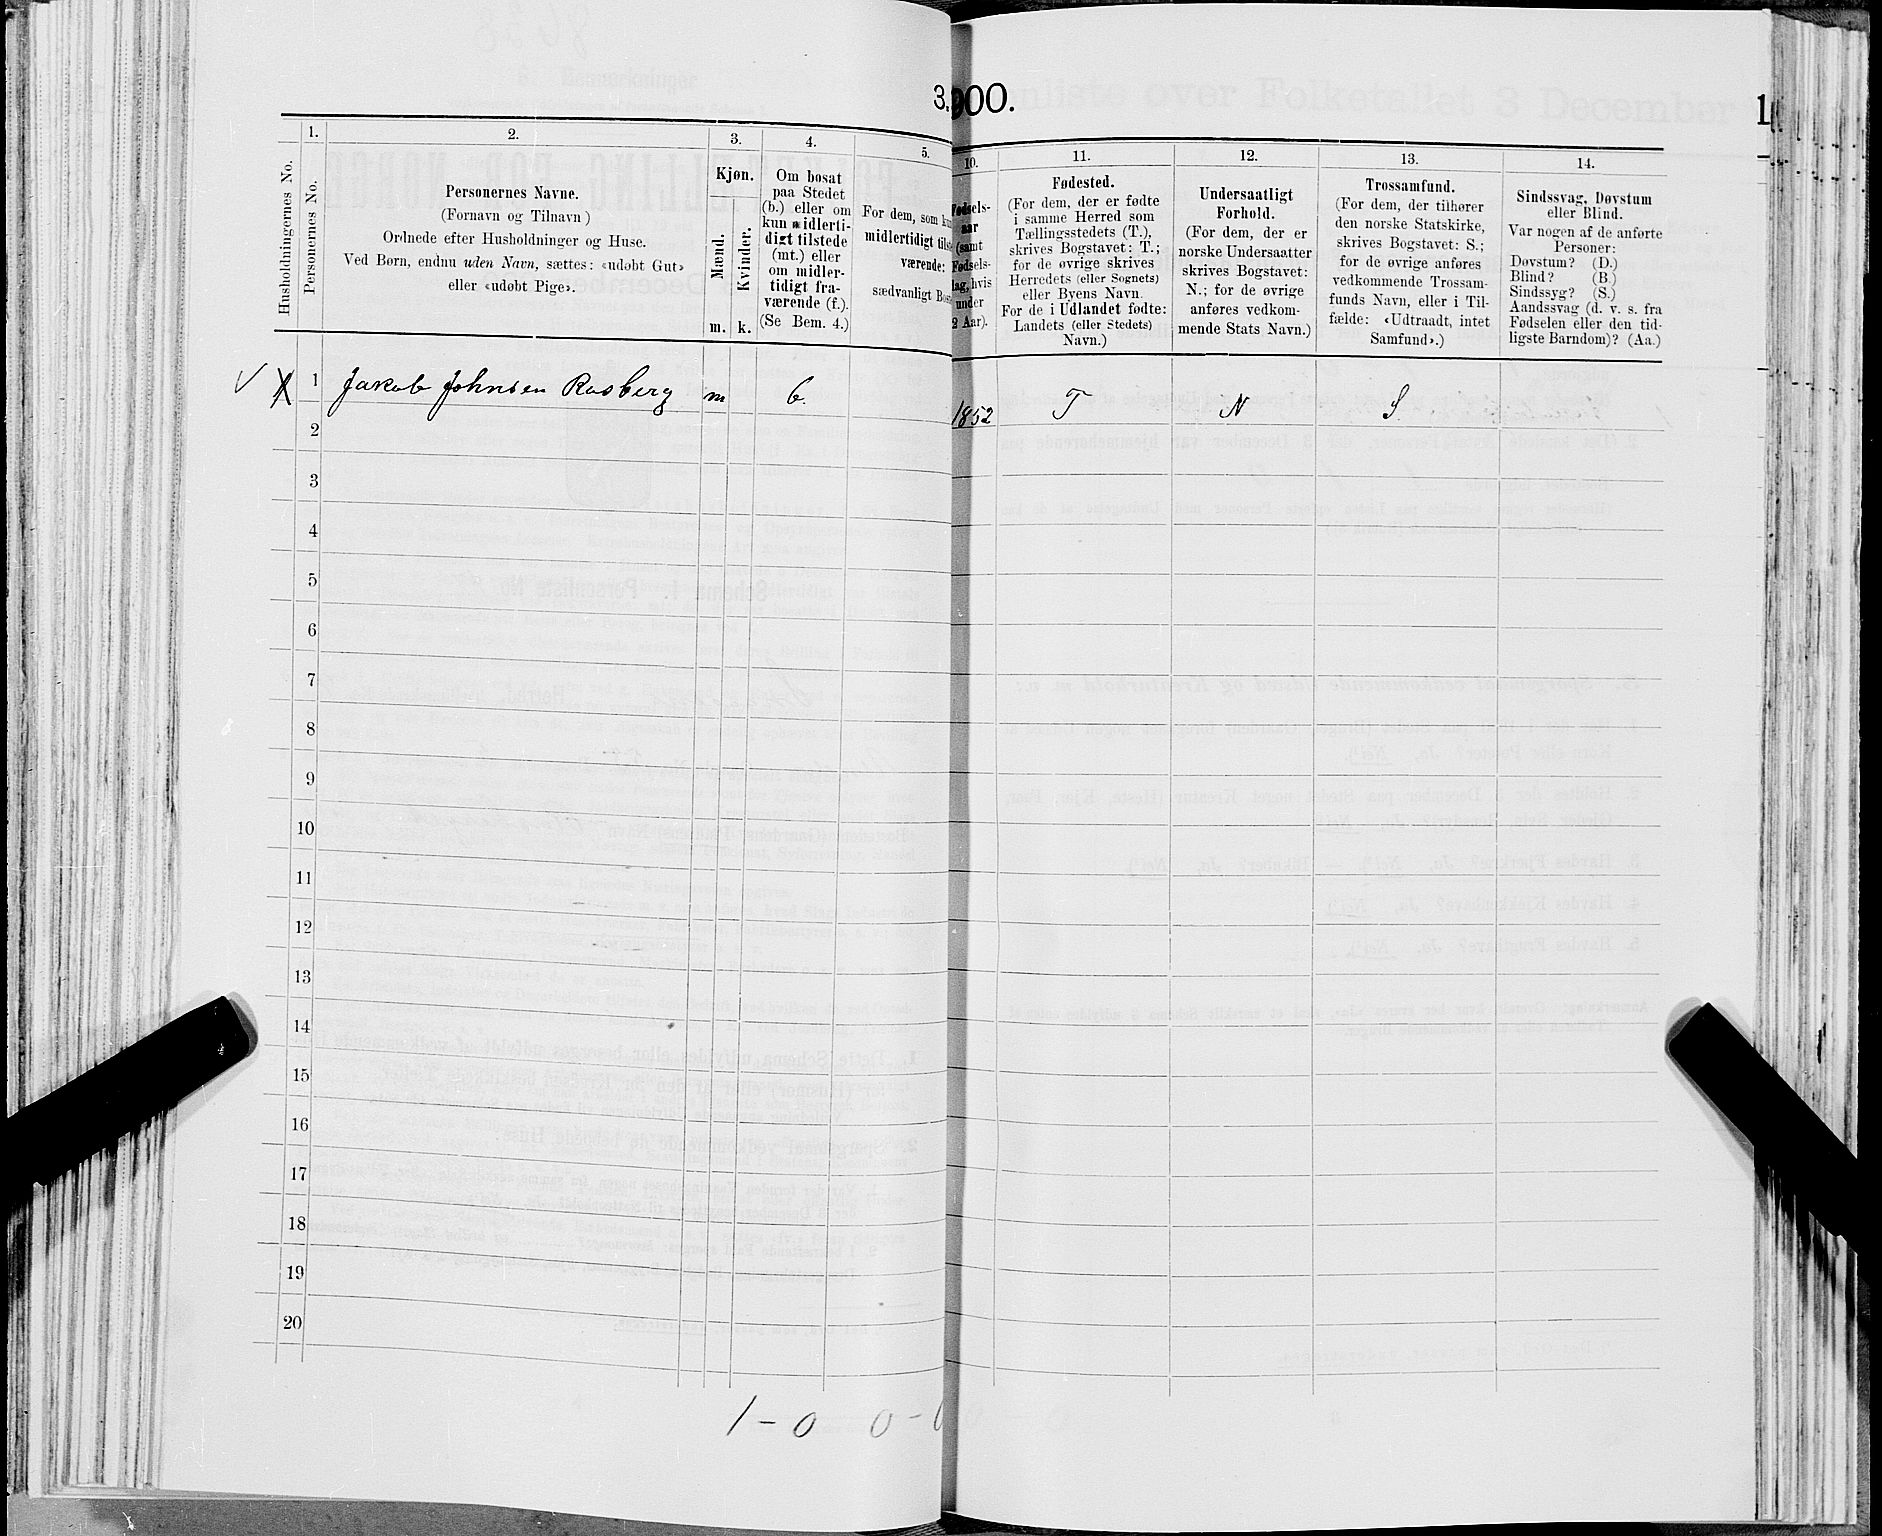 3.
900.
1
1.
2.
3.
4.
5.
Husholdningernes No.
Personernes No.
Personernes Navne.
(Fornavn og Tilnavn)
Ordnede efter Husholdninger og Huse.
Ved Børn, endnu uden Navn, sættes: «udøbt Gut»
eller «udøbt Pige».
Kjøn.
Mænd.
Kvinder.
m.
k.
Om bosat
paa Stedet
(b.) eller om
kun midlerti-
digt tilstede
(mt.) eller
om midler-
tidigt fra-
værende (f.).
(Se Bem. 4.)
For dem, som kun
midlertidigt tilste
værende:
sædvanligt Bos
10.
11.
12.
13.
14.
Fødsels-
aar
(samt
Fødsels-
dag, hvis
under
2 Aar).
Fødested.
(For dem, der er fødte
i samme Herred som
Tællingsstedets (T.),
skrives Bogstavet: T.;
for de øvrige skrives
Herredets (eller Sognets)
eller Byens Navn.
For de i Udlandet fødte:
Landets (eller Stedets)
Navn.)
Undersaatligt
Forhold.
(For dem, der er
norske Undersaatter
skrives Bogstavet:
N.; for de øvrige
anføres vedkom-
mende Stats Navn.)
Trossamfund.
(For dem, der tilhører
den norske Statskirke,
skrives Bogstavet: S.;
for de øvrige anføres
vedkommende Trossam-
funds Navn, eller i Til-
fælde: «Udtraadt, intet
Samfund».)
Sindssvag, Døvstum
eller Blind.
Var nogen af de anførte
Personer:
Døvstum? (D.)
Blind? (B.)
Sindssyg? (S.)
Aandssvag (d. v. s. fra
Fødselen eller den tid-
ligste Barndom)? (Aa.)
1 Jakob Johnsen Rasberg m b. 1852 T N S.
2
3
4
5
6
7
8
9
10
11
12
13
14
15
16
17
18
19
20
1 - 0 0 - 0